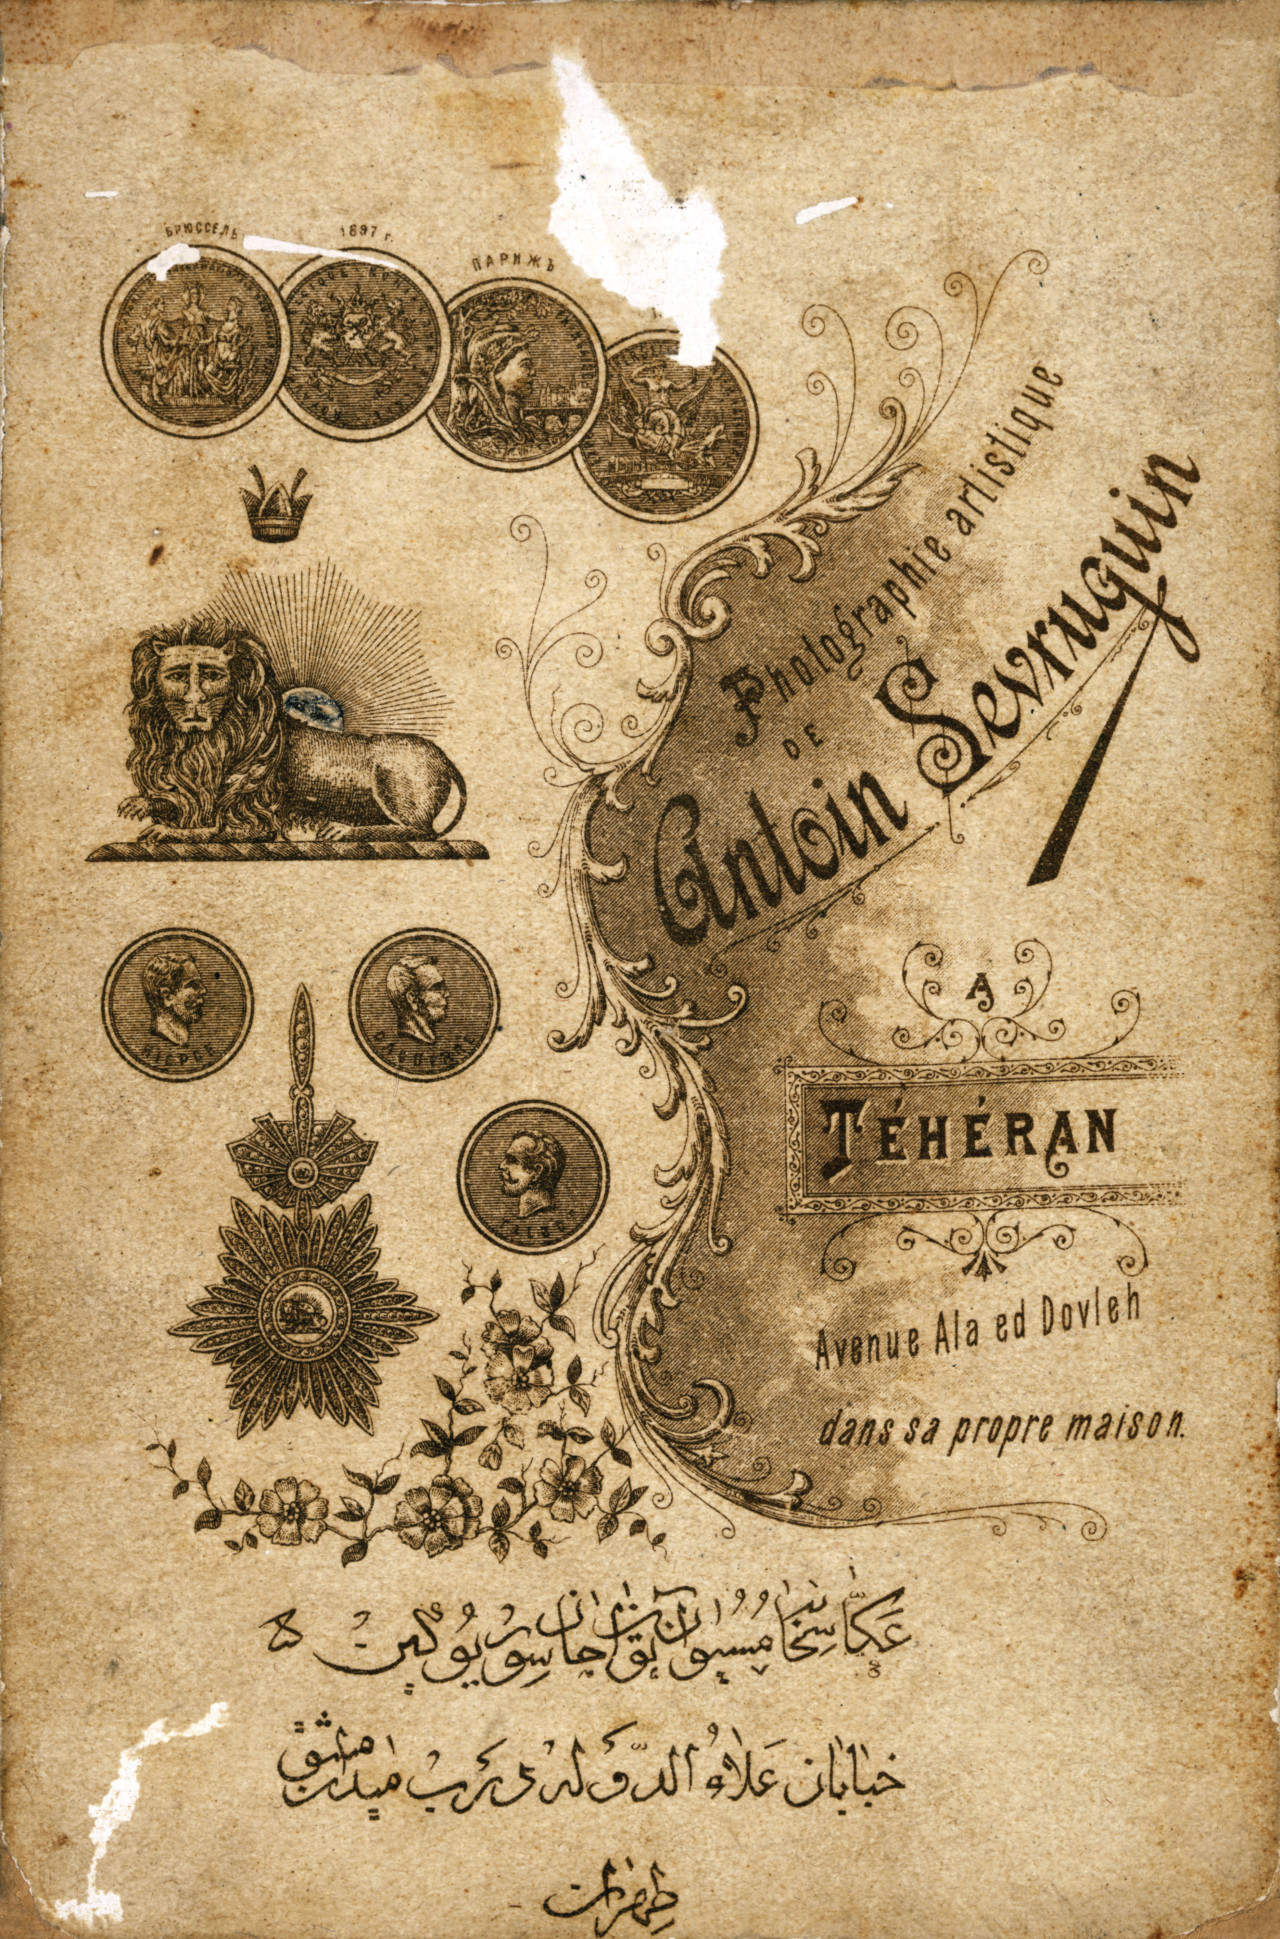 БРЮССЕЛЬ
1897 г.
ПАРИЖЪ
Photographie artistique
DE
Antoin Sevruguin
A
TÉHÉRAN
Avenue Ala ed Dovleh
dans sa propre maison.
NIEPCE
DAGUERRE
عکاسخانه مسیو آنتوان سوریوگین
خیابان علاء الدوله نزدیک میدان مشق
طهران